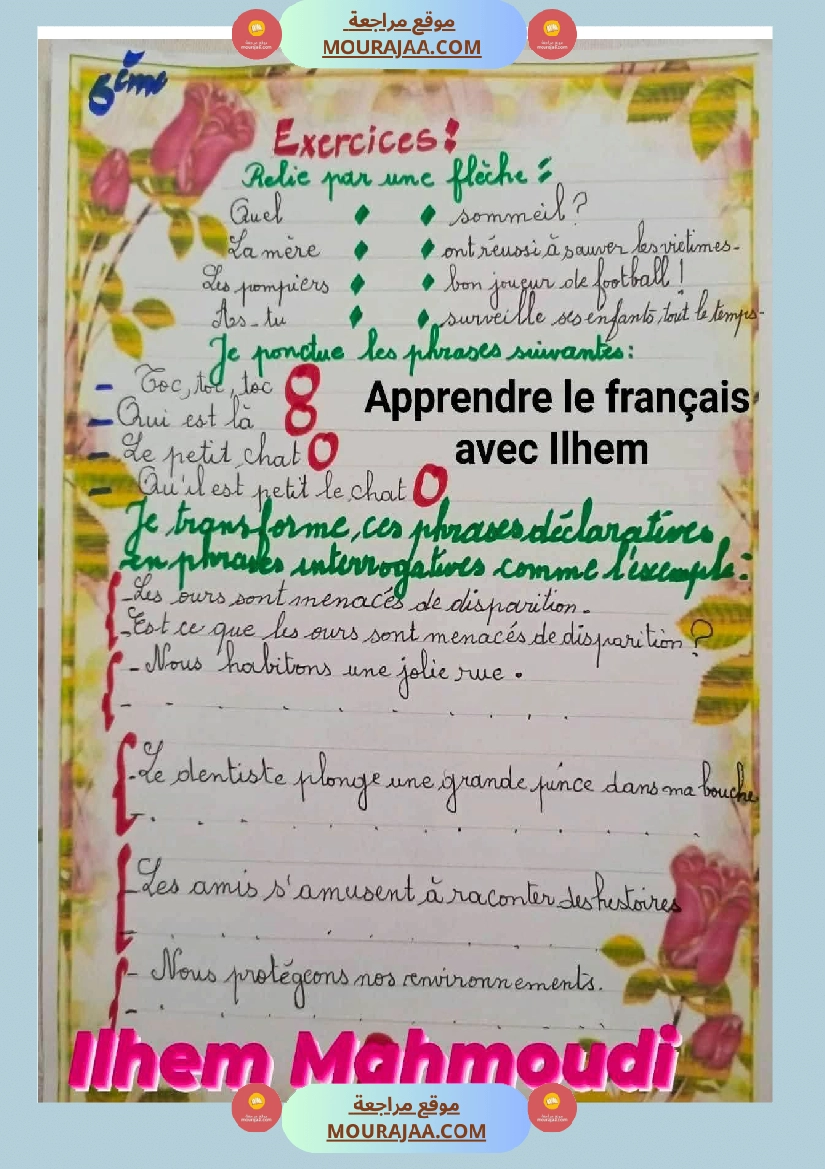 موقع مراجعة
MOURAJAA.COM
6ème
Exercices:
Relie par une flèche :
Quel sommeil ?
La mère ont réussi à sauver les victimes.
Les pompiers bon joueur de football !
As-tu surveille ses enfants tout le temps.
Je ponctue les phrases suivantes:
- Toc, toc, toc
- Qui est là
- Le petit chat
- Qu'il est petit le chat
Apprendre le français
avec Ilhem
Je transforme ces phrases déclaratives
en phrases interrogatives comme l'exemple:
- Les ours sont menacés de disparition.
- Est ce que les ours sont menacés de disparition ?
- Nous habitons une jolie rue.
- . . . . . . . .
- Le dentiste plonge une grande pince dans ma bouche
- . . . . . . . . . . .
- Les amis s'amusent à raconter des hestoires
- . . . . . . . .
- Nous protégeons nos environnements.
- . . . . . . . .
Ilhem Mahmoudi
موقع مراجعة
MOURAJAA.COM